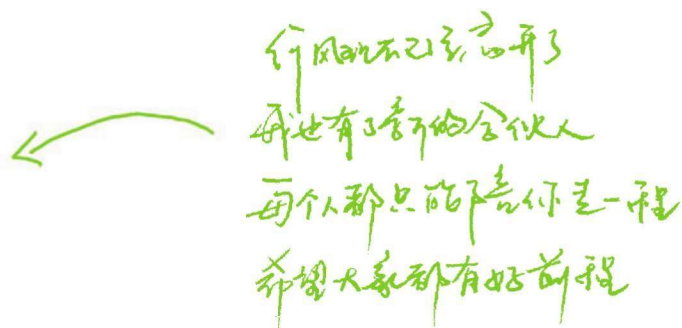 行风现在已经离开了
我也有了新的合伙人
每个人都只能陪你走一程
希望大家都有好前程